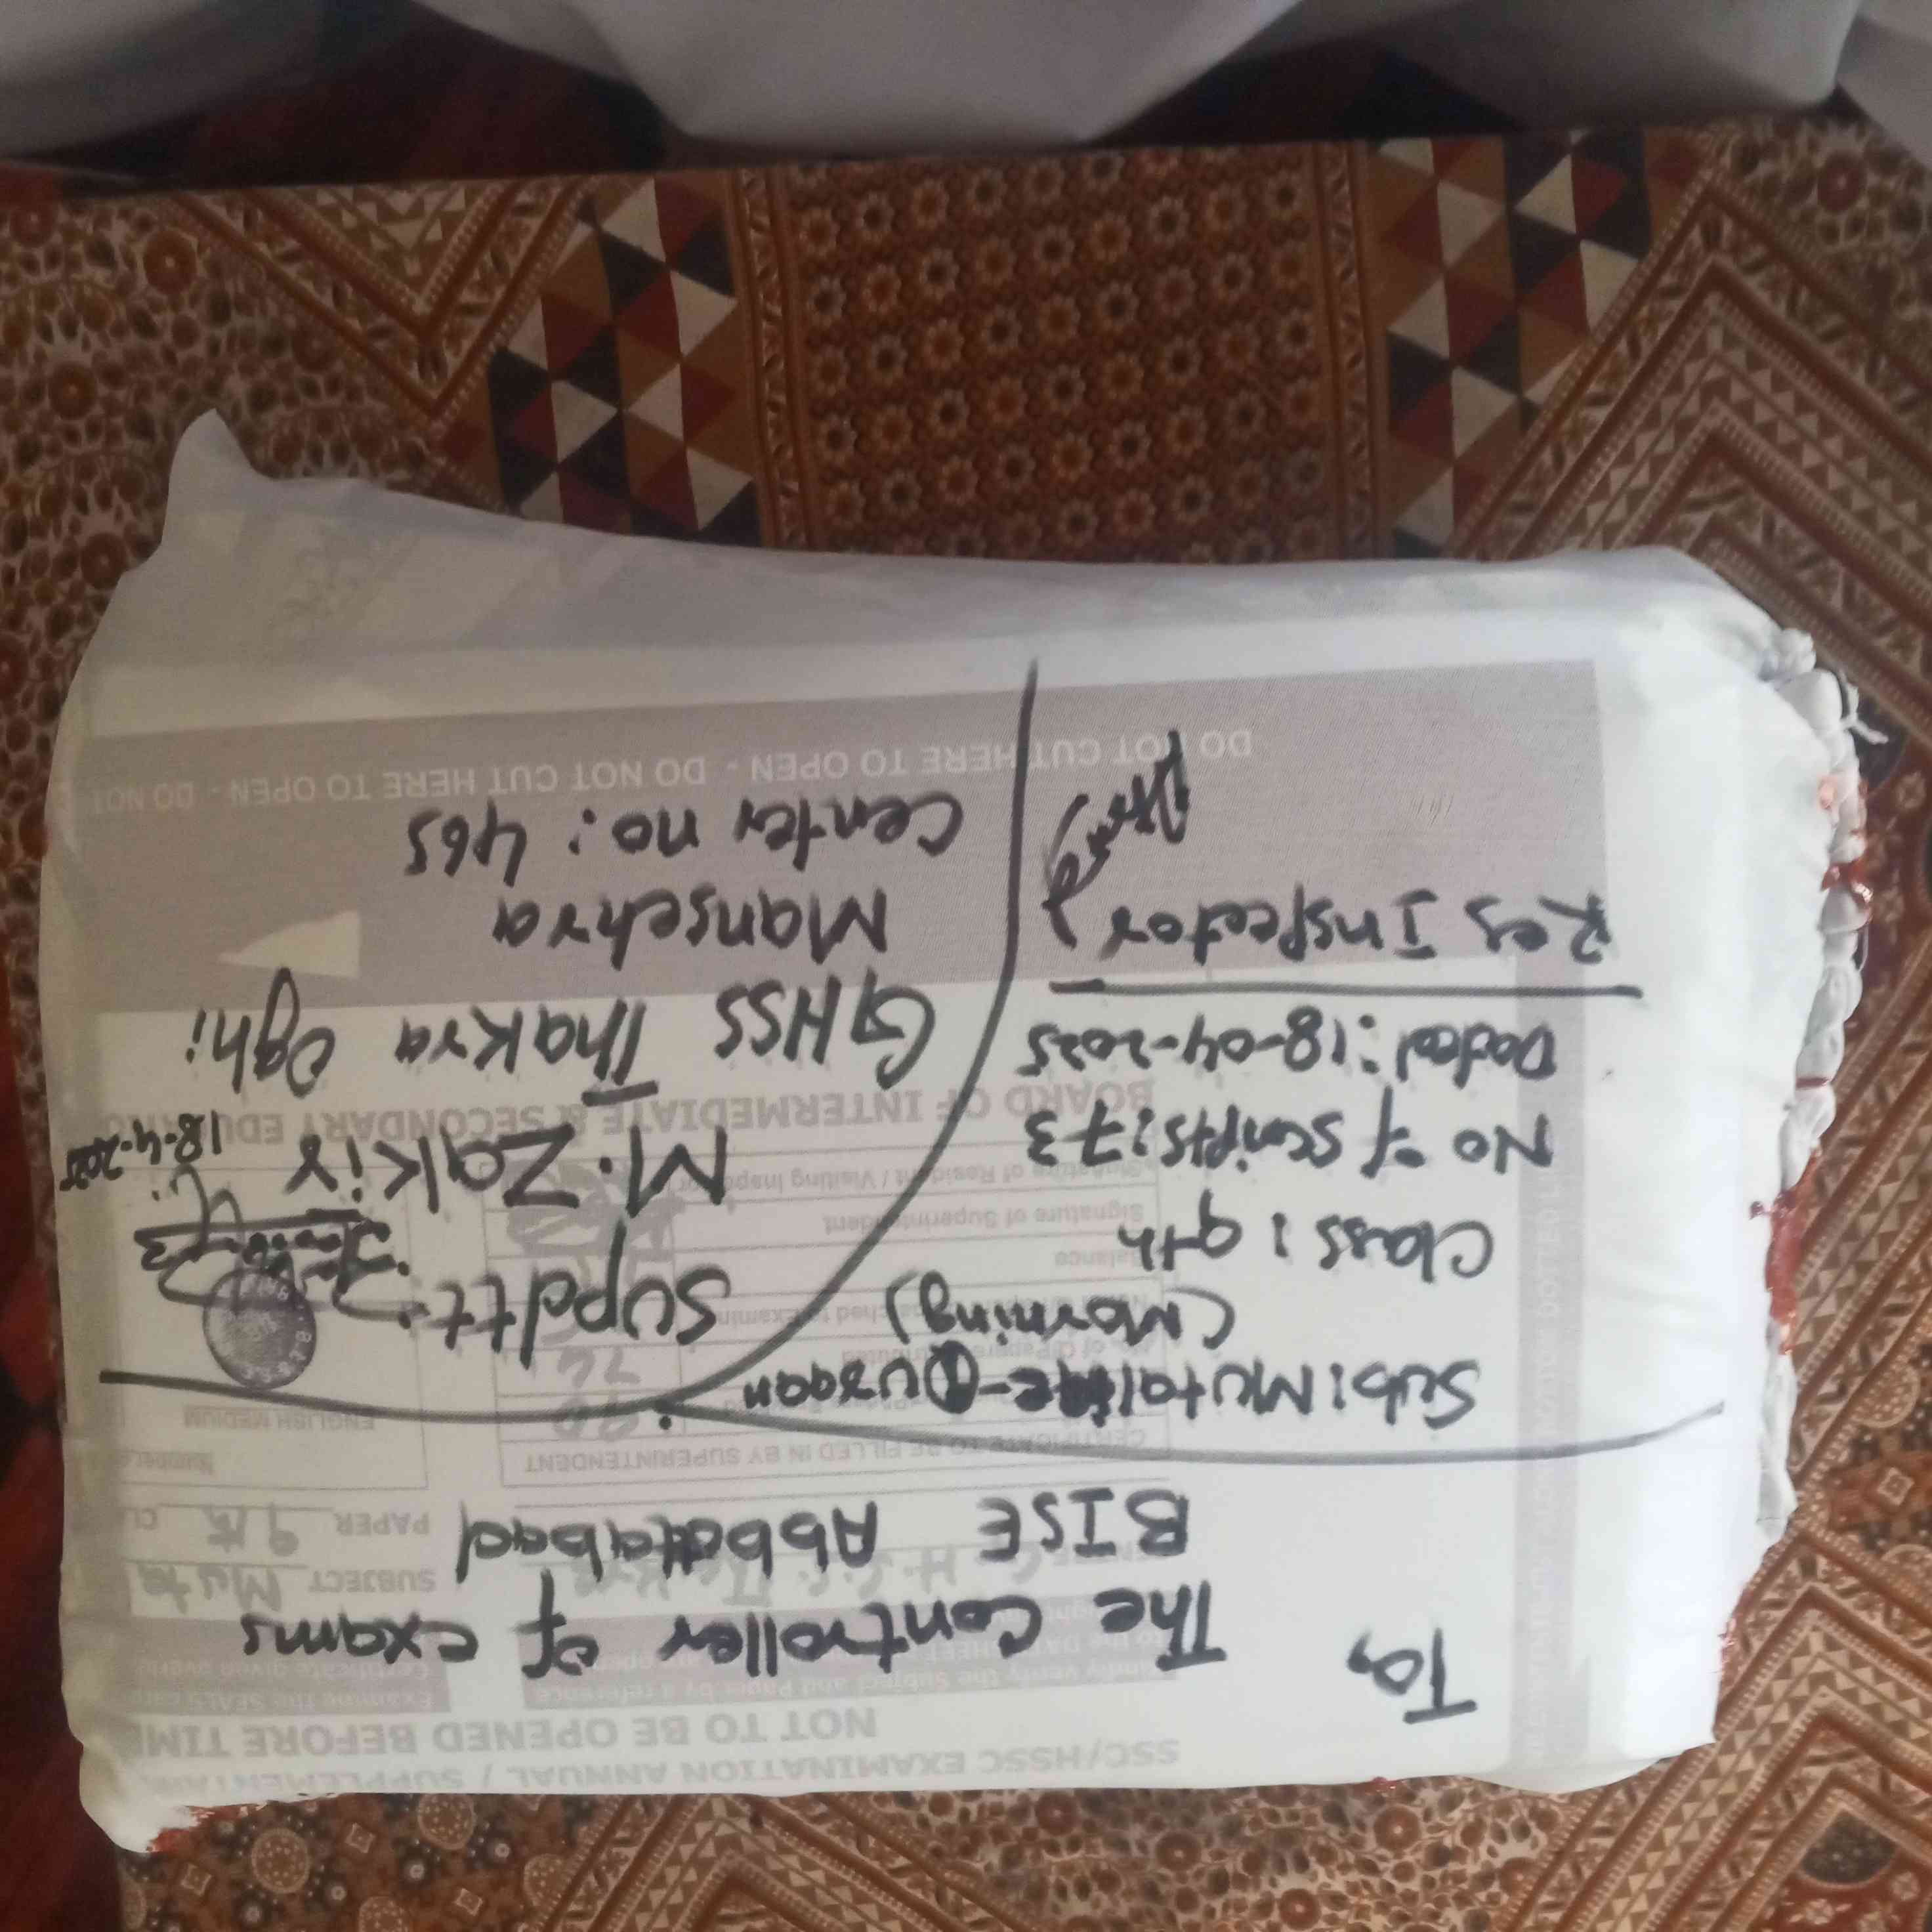 To,
The Controller of exams
BISE Abbottabad
Sub: Mutalia-e-Quraan
(Morning)
Class: 9th
No of scripts: 73
Dated: 18-04-2025
Res Inspector
Supdtt:
M. Zakir
18-4-2025
GHSS Thakra Oghi
Mansehra
Center no: 465
SSC/HSSC EXAMINATION ANNUAL /
NOT TO BE OPENED BEFORE TIME
SUBJECT Muta
PAPER 9th
CERTIFICATE TO BE FILLED IN BY SUPERINTENDENT
ENGLISH MEDIUM
90
74
Balance
Signature of Superintendent
Signature of Resident / Visiting Inspector
BOARD OF INTERMEDIATE & SECONDARY
DO NOT CUT HERE TO OPEN - DO NOT CUT HERE TO OPEN - DO NOT